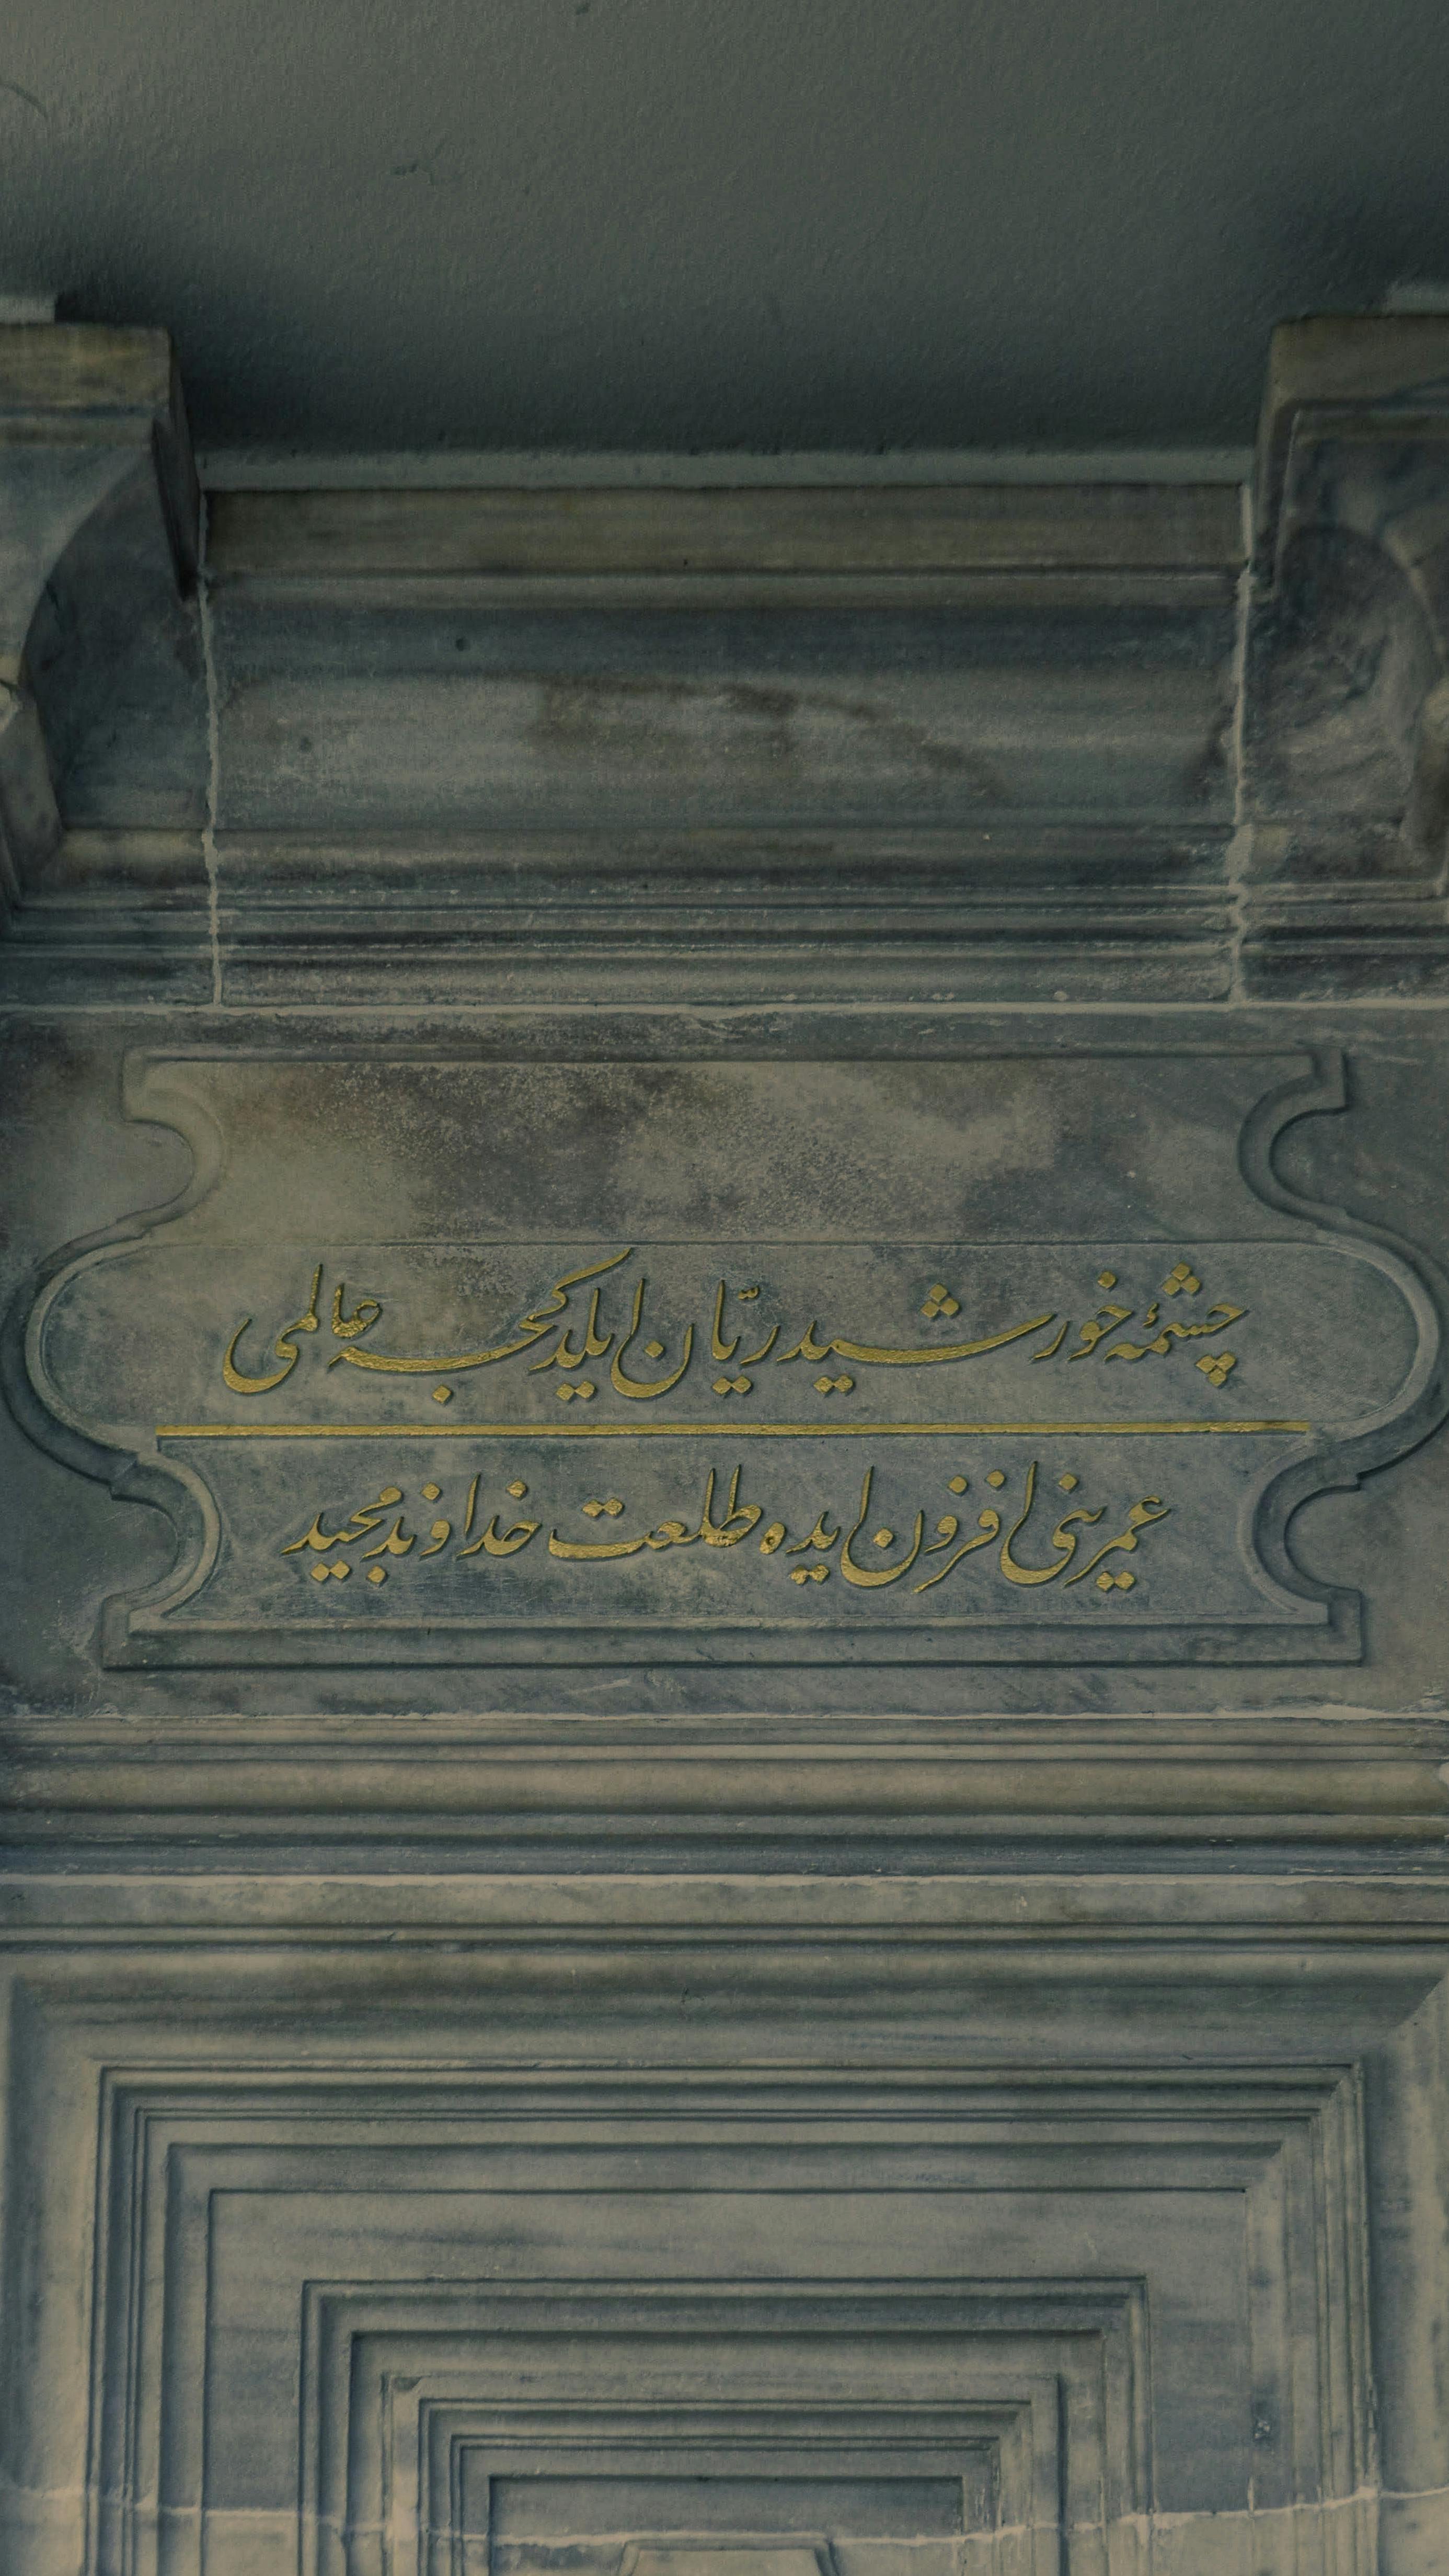 چشمۀ خورشید ریّان ایلدکجه عالمی
عمرینی افزون ایده طلعت خداوند مجید